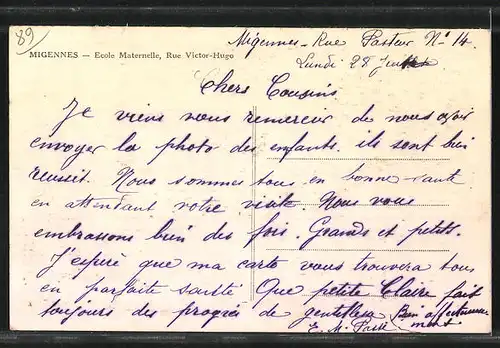 89
Migennes - Rue Pasteur N° 14.
MIGENNES — Ecole Maternelle, Rue Victor-Hugo
Lundi 28
Chers Cousins
Je viens vous remercier de nous avoir
envoyer la photo des enfants. ils sont bien
reussit. Nous sommes tous en bonne sante
en attendant votre visite. Nous vous
embrassons bien des fois. Grands et petits.
J'espère que ma carte vous trouvera tous
en parfaite santé Que petite Claire fait
toujours des progrès de gentilless
Bien affectueuse
ment
E. M.